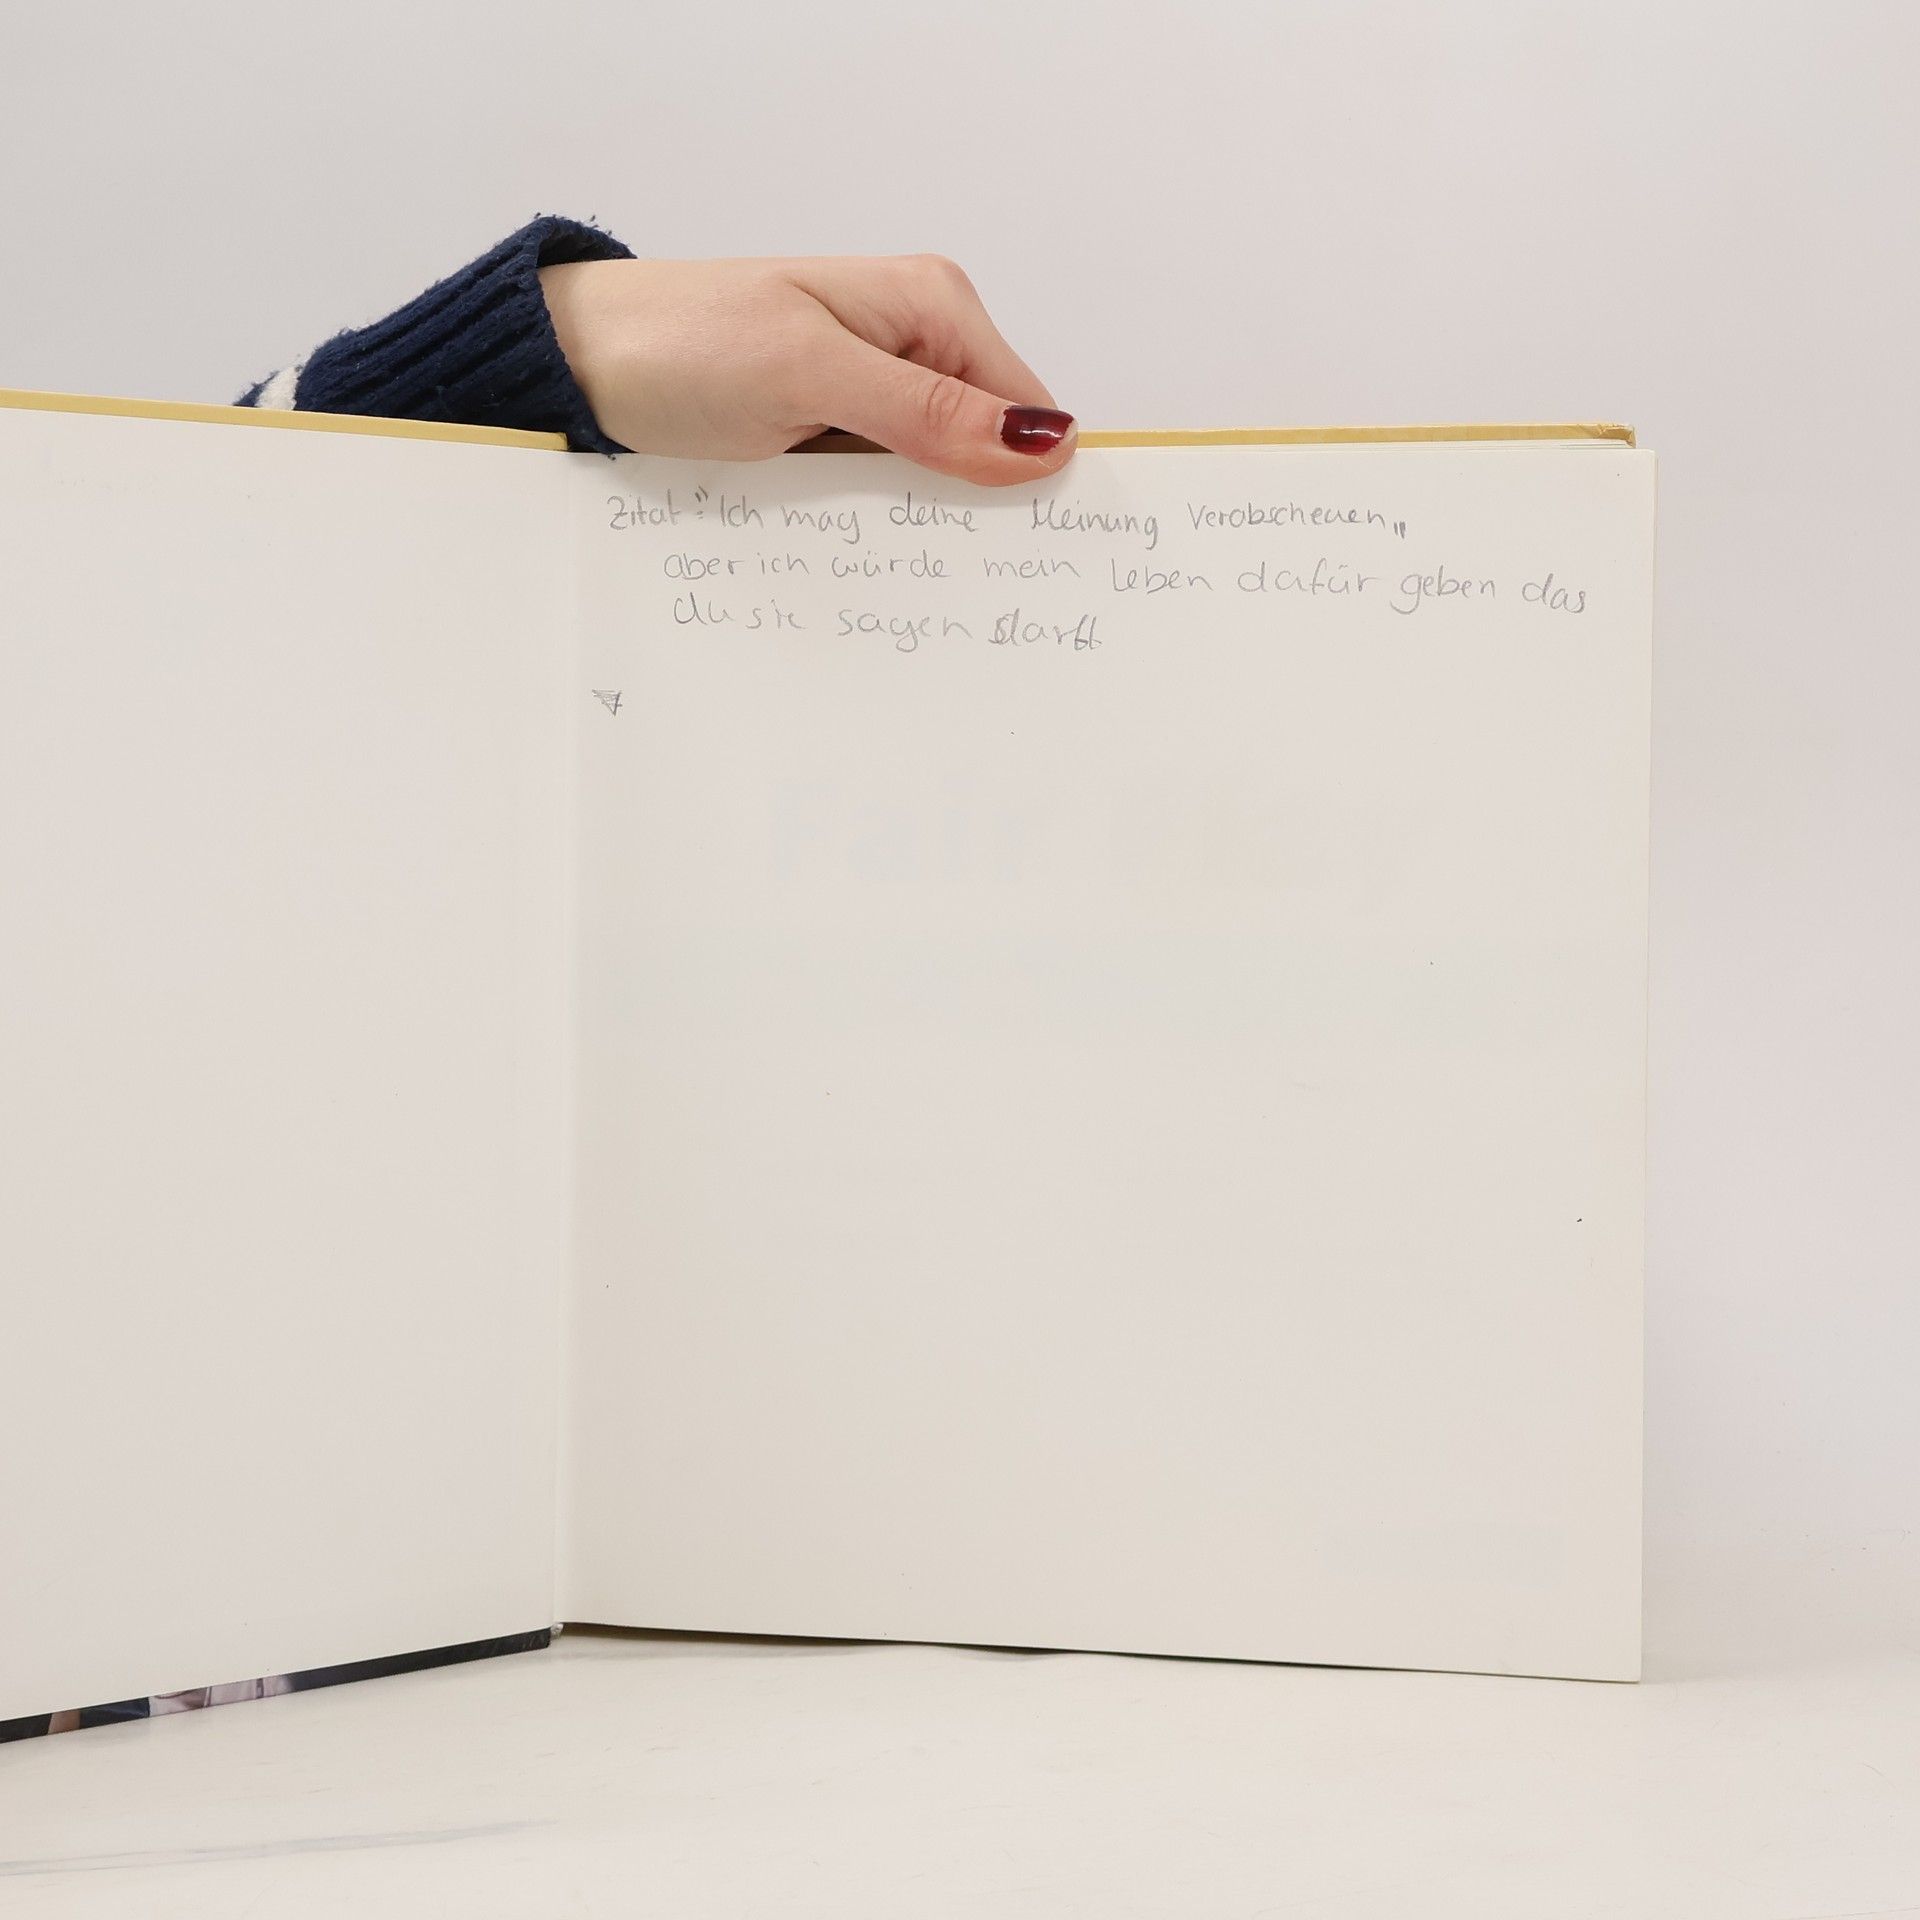 Zitat: "Ich mag deine Meinung verabscheuen"
aber ich würde mein Leben dafür geben das
du sie sagen darfst